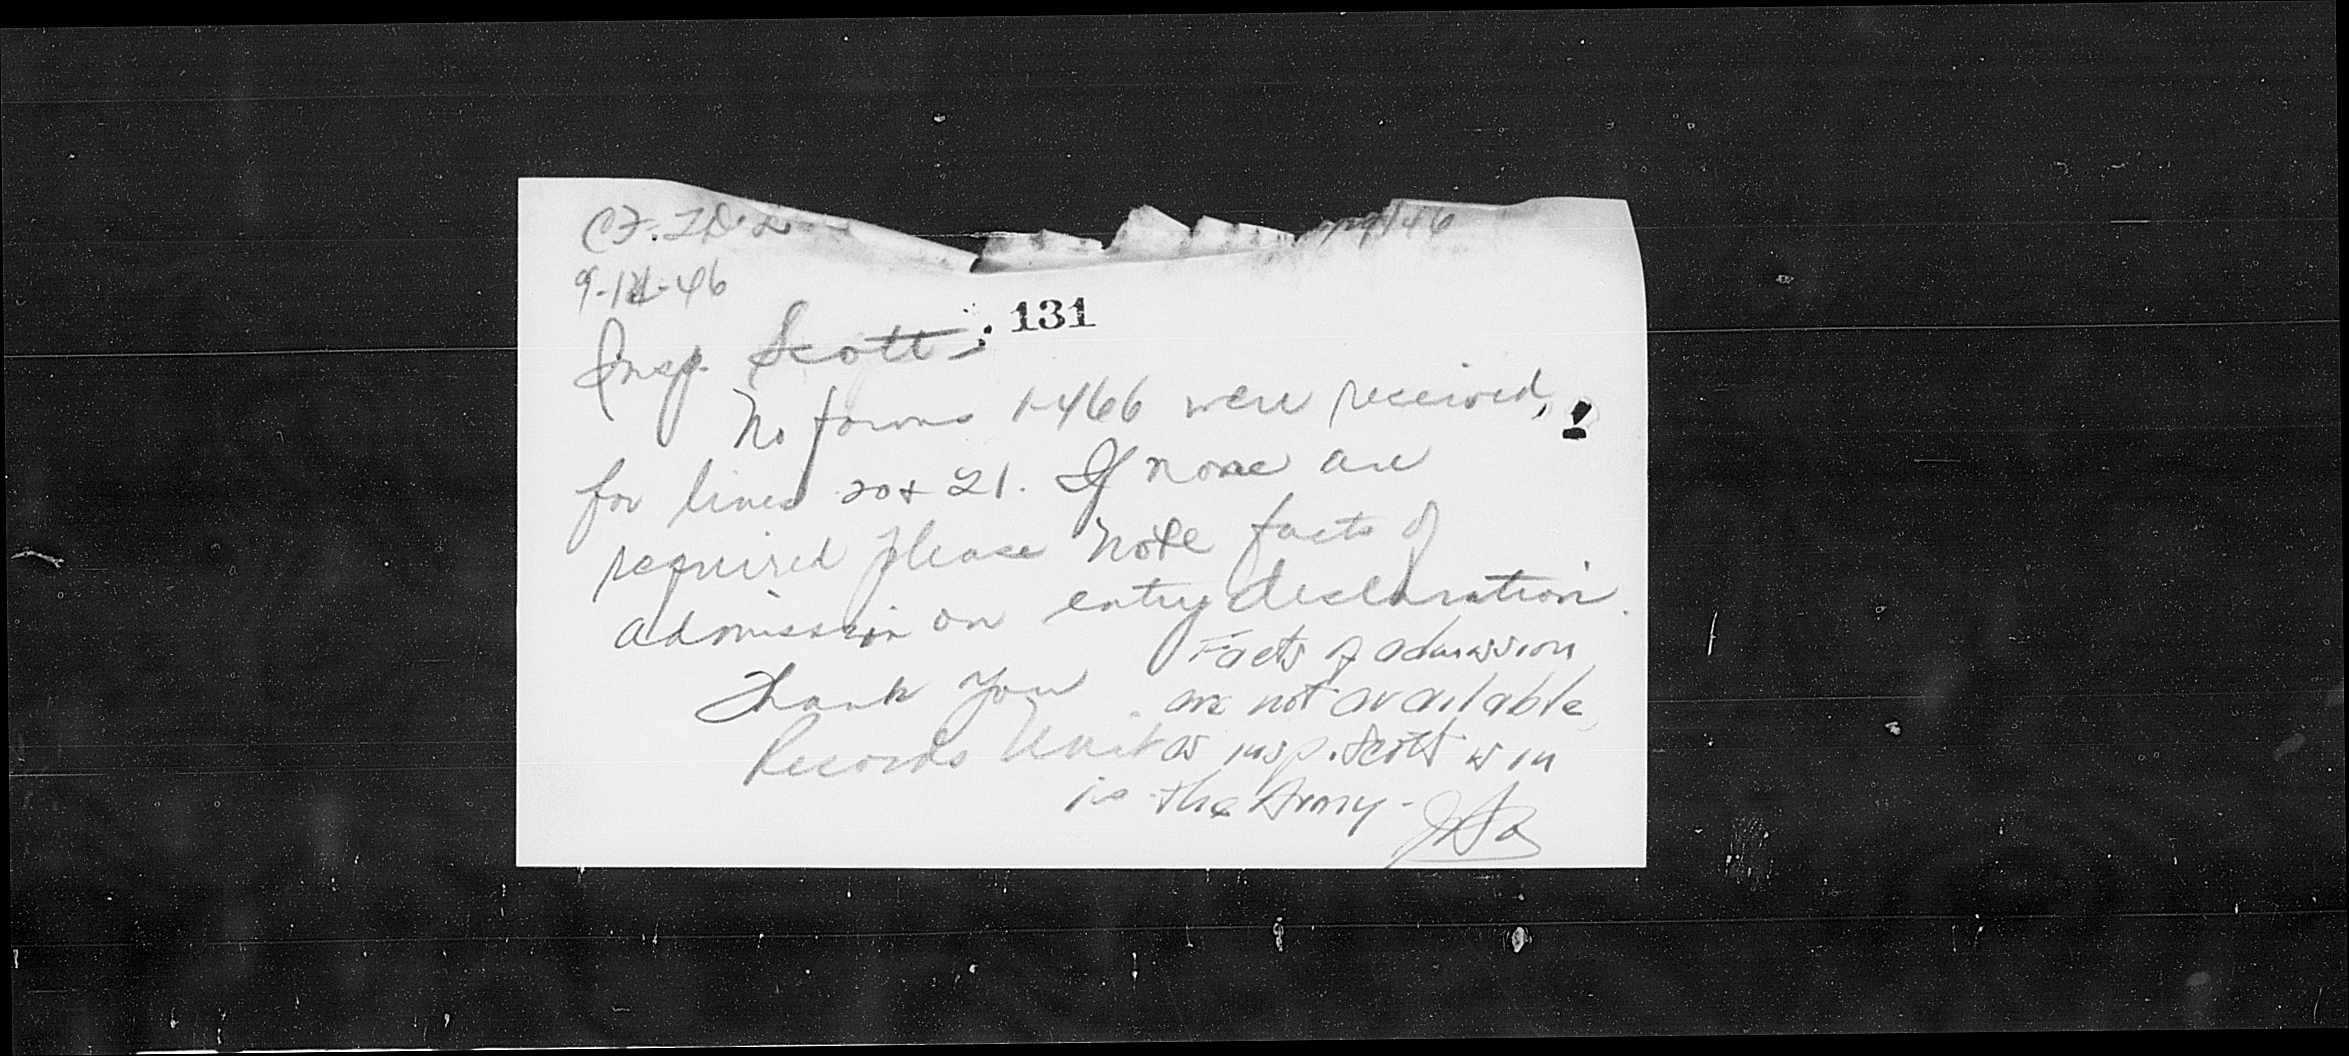 9-12-46
131
Insp. Scott:
No forms I-466 were received,
for lines 20 & 21. If none are
required please note facts of
admission on entry declaration.
Thank you
Records Unit
Facts of admission
are not available,
as insp. Scott is in
is the Army -